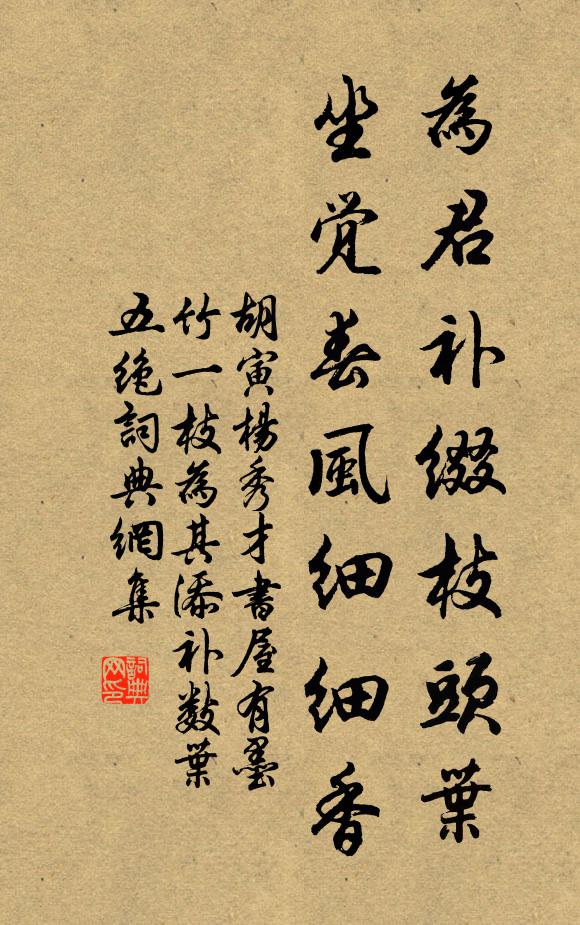 為君补缀枝頭葉
坐觉春風细细香
胡寅楊秀才書屋有墨
竹一枝為其添补数葉
五绝詞典網集
詞典
网印